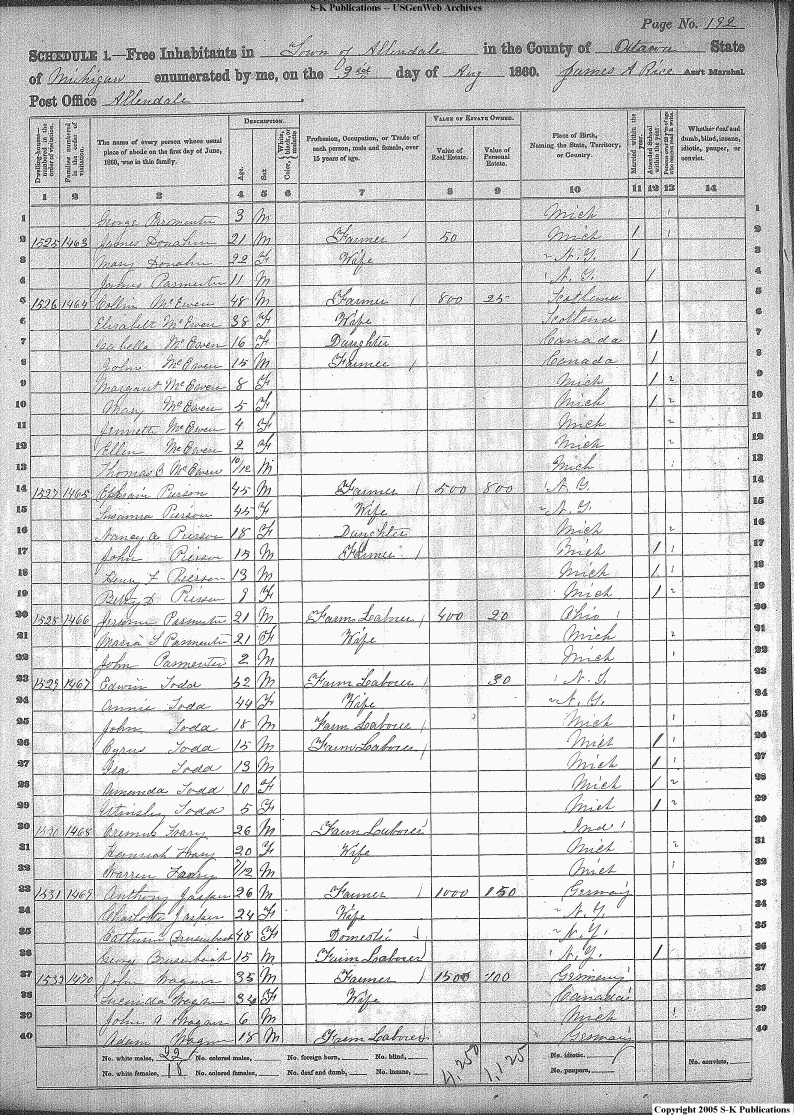 S-K Publications -- USGenWeb Archives
Page No. 192
SCHEDULE 1.—Free Inhabitants in Town of Allendale in the County of Ottawa State
of Michigan enumerated by me, on the 3rd day of Aug 1860. James A Rice Ass't Marshal
Post Office Allendale
Dwelling-houses—numbered in the order of visitation. Families numbered in the order of visitation. The name of every person whose usual place of abode on the first day of June, 1860, was in this family. DESCRIPTION. Age. Sex. Color, White, black, or mulatto. Profession, Occupation, or Trade of each person, male and female, over 15 years of age. VALUE OF ESTATE OWNED. Value of Real Estate. Value of Personal Estate. Place of Birth, Naming the State, Territory, or Country. Married within the year. Attended School within the year. Whether deaf and dumb, blind, insane, idiotic, pauper, or convict.
1 2 3 4 5 6 7 8 9 10 11 12 13 14
1 George Parmenter 3 M Mich 1 1
2 1525 1463 James Donahue 21 M Farmer 1 50 Mich 1 1 2
3 Mary Donahue 22 F Wife N.Y. 1 3
4 James Parmenter 11 M N.Y. 1 4
5 1526 1464 Collin McEwen 48 M Farmer 1 800 25 Scotland 5
6 Elisabeth McEwen 38 F Wife Scotland 6
7 Isabella McEwen 16 F Daughter Canada 1 7
8 John McEwen 15 M Farmer 1 Canada 1 8
9 Margaret McEwen 8 F Mich 1 2 9
10 Mary McEwen 5 F Mich 1 2 10
11 Jennette McEwen 4 F Mich 2 11
12 Ellen McEwen 2 F Mich 2 12
13 Thomas McEwen 10/12 M Mich 1 13
14 1527 1465 Ephraim Pierson 45 M Farmer 1 500 800 N.Y. 14
15 Susanna Pierson 45 F Wife N.Y. 15
16 Nancy A Pierson 18 F Daughter Mich 2 16
17 John Pierson 15 M Farmer 1 Mich 1 1 17
18 Henry F Pierson 13 M Mich 1 1 18
19 Betsy D Pierson 9 F Mich 1 2 19
20 1528 1466 Jerome Parmenter 21 M Farm Laborer 1 400 20 Ohio 1 20
21 Maria L Parmenter 21 F Wife Mich 2 21
22 John Parmenter 2 M Mich 1 22
23 1529 1467 Edwin Todd 52 M Farm Laborer 1 30 N.Y. 23
24 Annie Todd 44 F Wife N.Y. 24
25 John Todd 18 M Farm Laborer 1 Mich 1 25
26 Cyrus Todd 15 M Farm Laborer 1 Mich 1 1 26
27 Isa Todd 13 M Mich 1 1 27
28 Amanda Todd 10 F Mich 1 2 28
29 Todd 5 F Mich 1 2 29
30 1530 1468 26 M Farm Laborer Ind 30
31 20 F Wife Mich 2 31
32 Warren 7/12 M Mich 1 32
33 1531 1469 Anthony Jasper 26 M Farmer 1 1000 150 Germany 33
34 Charlotte Jasper 24 F Wife N.Y. 34
35 48 F Domestic N.Y. 35
36 George 15 M Farm Laborer N.Y. 1 36
37 1532 1470 John Wagner 35 M Farmer 1 1500 100 Germany 37
38 Lucinda Wagner 34 F Wife Canada 38
39 John A Wagner 6 M Mich 1 39
40 Adam Wagner 18 M Farm Laborer Germany 40
No. white males, 22 No. colored males, No. foreign born, No. blind, 4,250 1,125 No. idiotic, No. convicts,
No. white females, 18 No. colored females, No. deaf and dumb, No. insane, No. paupers,
Copyright 2005 S-K Publications